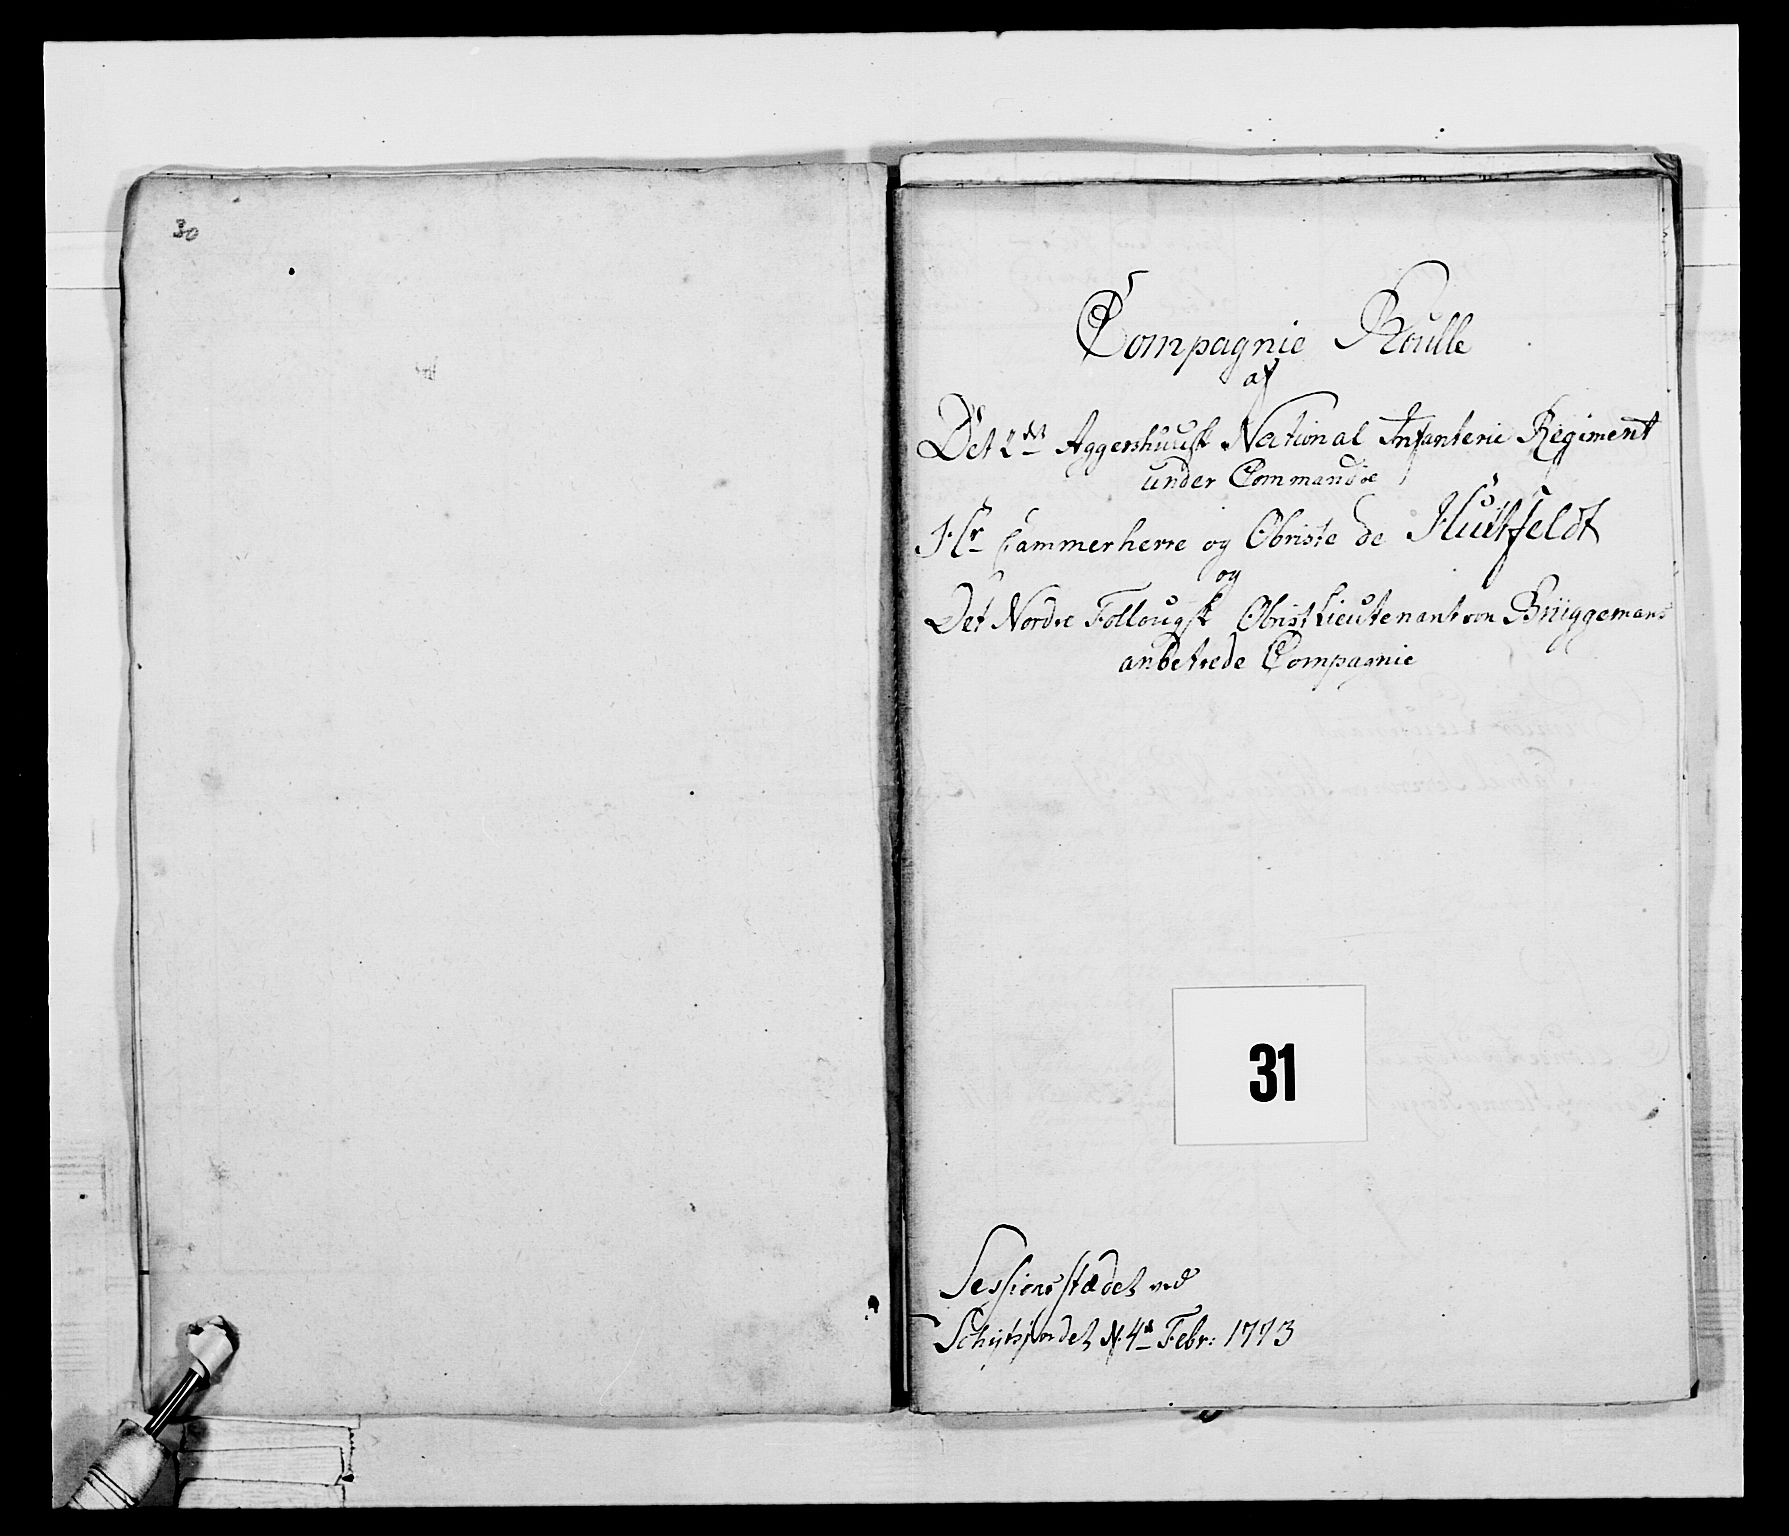 30
Compagnie Roulle
af
Det 2det Aggershuusk National Infanterie Regiment
under Commando
Hr Cammerherre og Obriste de Huitfeldt
og
Det Nordre Follougsk Obristlieutenant von Brüggemans
anbetrede Compagnie
31
Sessionsstædet ved
d. 4de Febr: 1773